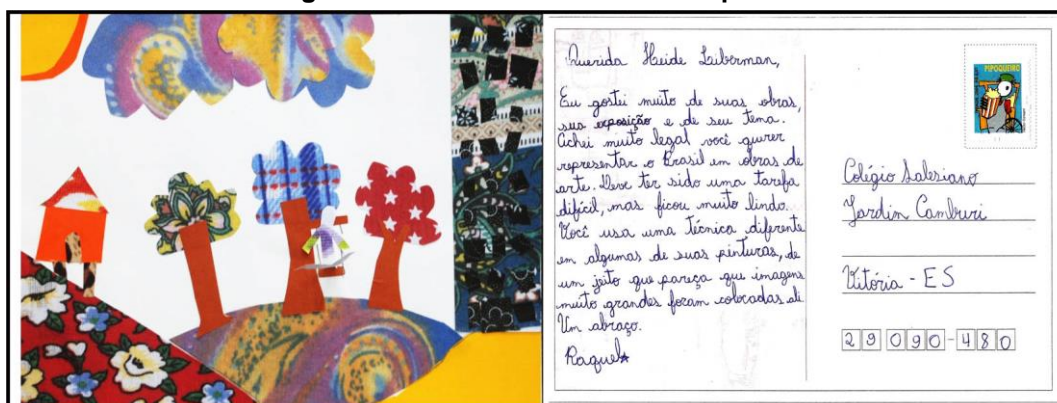 Querida Heide Liberman,
Eu gostei muito de suas obras,
sua exposição e de seu tema.
Achei muito legal você querer
representar o Brasil em obras de
arte. Deve ter sido uma tarefa
difícil, mas ficou muito lindo.
Você usa uma técnica diferente
em algumas de suas pinturas, de
um jeito que pareça que imagens
muito grandes foram colocadas ali
Um abraço.
Raquel
PIPOQUEIRO
Colégio Salesiano
Jardin Camburi
Vitória - ES
29090-480